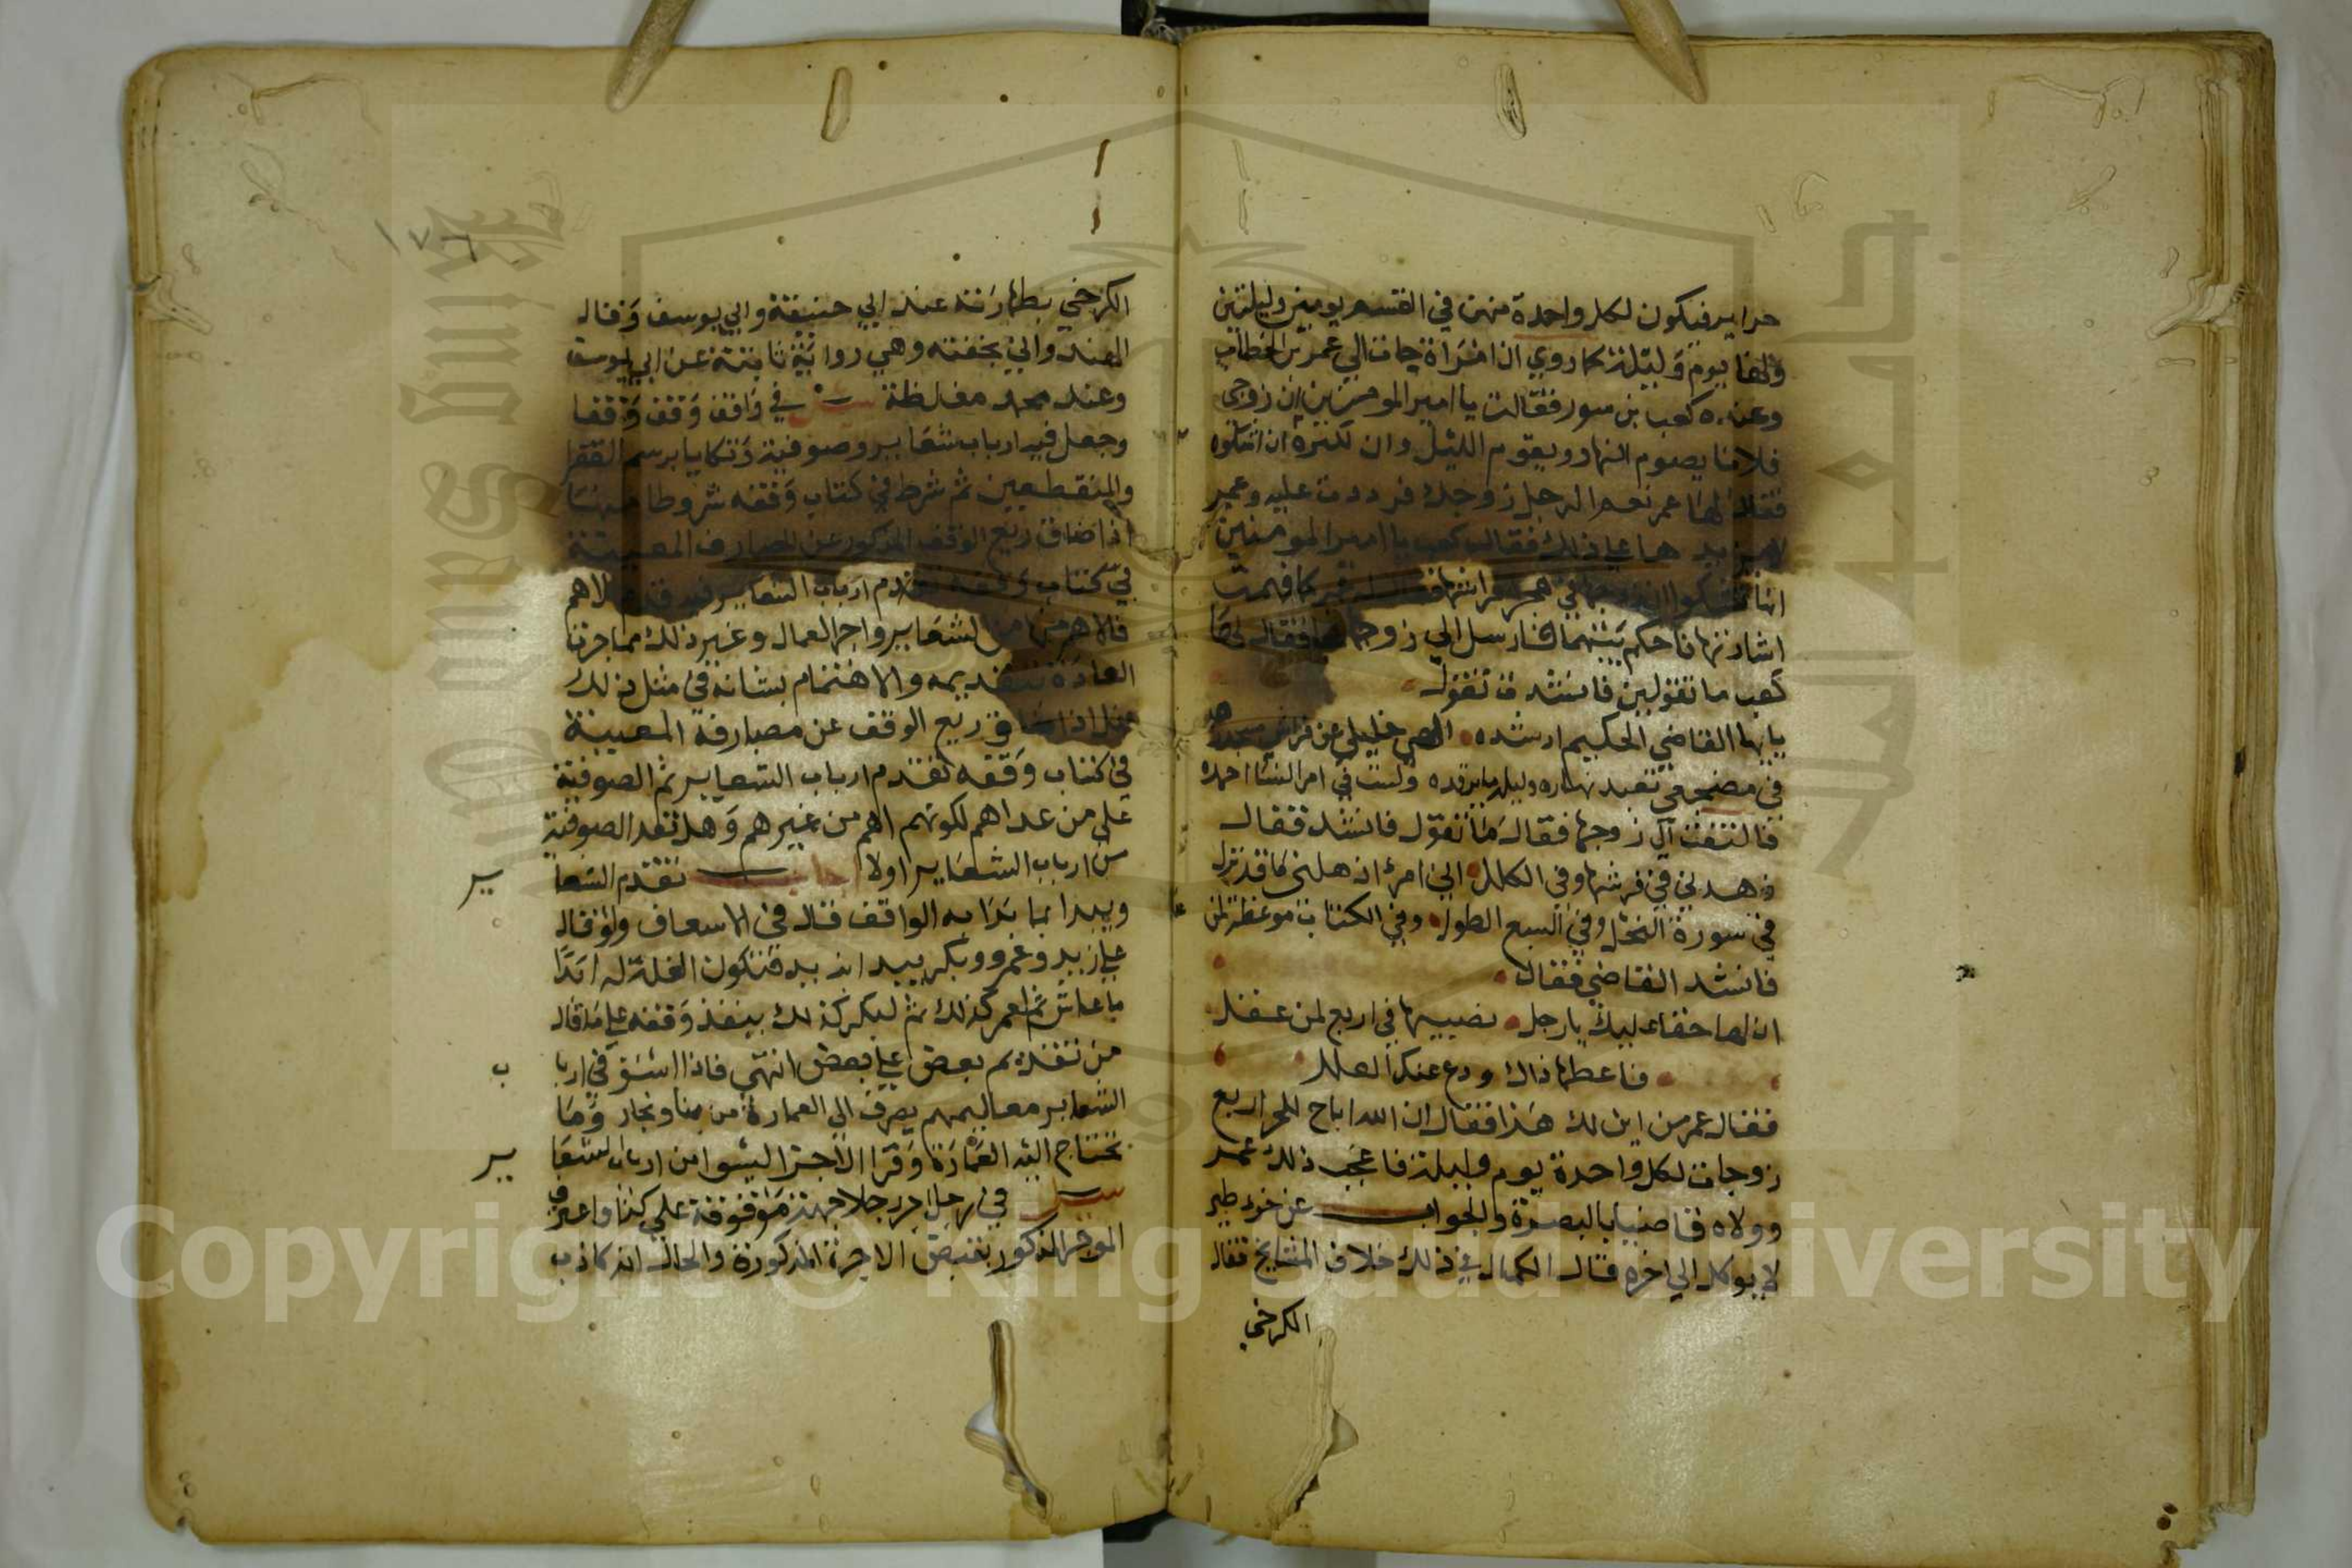 حراير فيكون لكل واحدة منهن في القسم يومين وليلتين
ولها يوم وليلة كما روي ان امراة جات الي عمر بن الخطاب
وعنده كعب بن سور فقالت يا امير المومنين ان زوجي
فلانا يصوم النهار ويقوم الليل وان لنكره ان اشكوه
فقال لها عمر نعم الرجل زوجك فرددت عليه وعمر
لا يزيدها علي ذلك فقال كعب يا امير المومنين
انها تشكوا زوجها في هجر فراشها فقال له عمر كما فهمت
اشارتها فاحكم بينهما فارسل الي زوجها فقال لها
كعب ما تقولين فانشدت تقول
يايها القاضي الحكيم ارشده الهي خليلي عن فراشي مسجده
في مضجعي تعبد نهاره وليله ما يرقده ولست في امر النسا احمده
فالتفت الي زوجها فقال ما تقول فانشد فقال
زهدني في فرشها وفي الكلل اني امرؤ اذهلني ما قد نزل
في سورة النحل وفي السبع الطول وفي الكتاب موعظة لمن
فانشد القاضي فقال
ان لها حقا عليك يا رجل نصيبها في اربع لمن عقل
فاعطها ذاك ودع عنك العلل
فقال عمر من اين لك هذا فقال ان الله اباح للحر اربع
زوجات لكل واحدة يوم وليلة فاعجب ذلك عمر
وولاه قاضيا بالبصرة والجواب عن خرء طير
لا يوكل الي اخره قال الكمال في ذلك خلاف المشايخ فقال
الكرخي
١٧٦
الكرخي بطهارته عند ابي حنيفة وابي يوسف وقال
الهندواني بخفته وهي رواية ثابتة عن ابي يوسف
وعند محمد مغلظة في واقف وقف وقفا
وجعل فيه ارباب شعاير وصوفية وتكايا برسم الفقرا
والمنقطعين ثم شرط في كتاب وقفه شروطا منها
اذا ضاق ريع الوقف المذكور عن المصارف المعينة
في كتاب وقفه يقدم ارباب الشعاير فيه الاهم
فالاهم من الشعاير واجر العمال وغير ذلك مما جرت
العادة بتقديمه والاهتمام بشانه في مثل ذلك
هل اذا ضاق ريع الوقف عن مصارفه المعينة
في كتاب وقفه تقدم ارباب الشعاير ثم الصوفية
علي من عداهم لكونهم اهم من غيرهم وهل تعد الصوفية
من ارباب الشعاير اولا اجاب تقدم الشعا ير
ويبدا بما بدا به الواقف قال في الاسعاف ولو قال
علي زيد وعمرو وبكر يبدا بزيد فتكون الغلة له ابدا
ما عاش ثم لعمر كذلك ثم لبكر كذلك ينفذ وقفه علي ما قال
من تقديم بعض علي بعض انتهي فاذا استوفي اربا ب
الشعاير معاليمهم يصرف الي العمارة من بنا ونجار وما
تحتاج اليه العمارة وقرا الاجزا ليسوا من ارباب الشعا ير
سيل في رجل اجر رجلا جهة موقوفة علي كذا واعترف
الموجر المذكور بقبض الاجرة المذكورة والحال انه كاذب